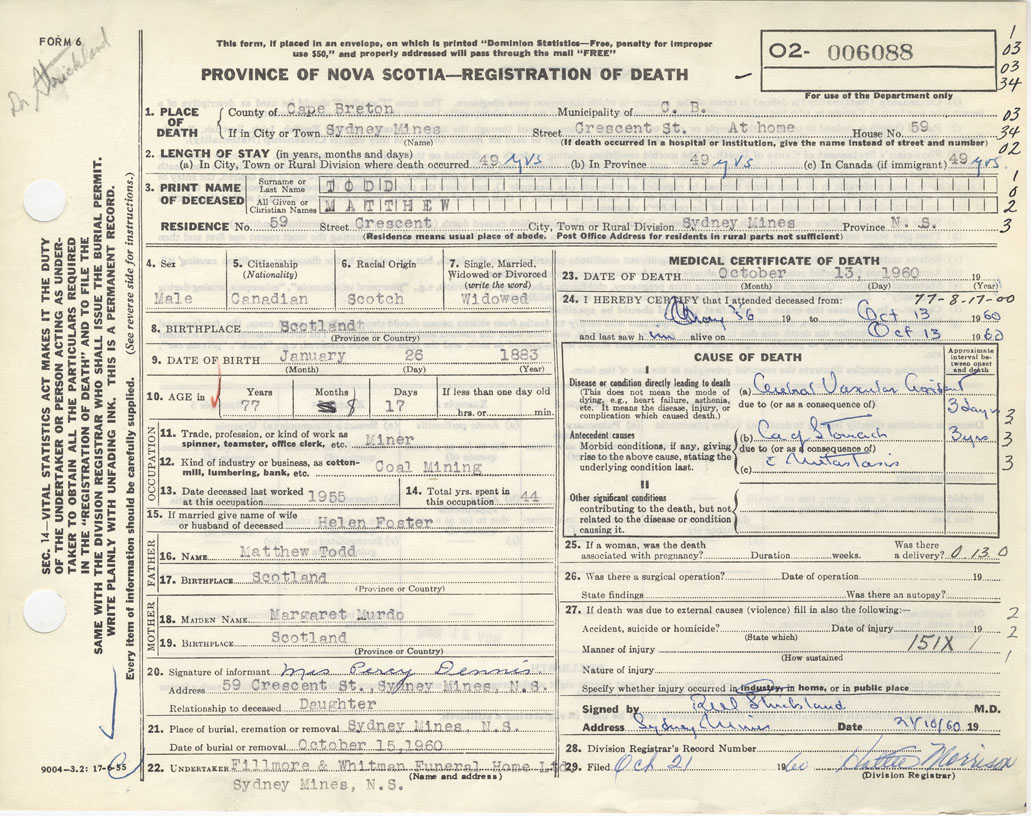 FORM 6
Dr. Strickland
This form, if placed in an envelope, on which is printed "Dominion Statistics—Free, penalty for improper
use $50," and properly addressed will pass through the mail "FREE"
PROVINCE OF NOVA SCOTIA—REGISTRATION OF DEATH
02- 006088
For use of the Department only
1
03
03
34
03
34
02
1
0
2
3
1. PLACE OF DEATH
County of Cape Breton Municipality of C. B.
If in City or Town Sydney Mines Street Crescent St. At home House No. 59
(Name) (If death occurred in a hospital or institution, give the name instead of street and number)
2. LENGTH OF STAY (in years, months and days)
(a) In City, Town or Rural Division where death occurred 49 yrs (b) In Province 49 yrs (c) In Canada (if immigrant) 49 yrs.
3. PRINT NAME OF DECEASED
Surname or Last Name TODD
All Given or Christian Names MATTHEW
RESIDENCE No. 59 Street Crescent City, Town or Rural Division Sydney Mines Province N. S.
(Residence means usual place of abode. Post Office Address for residents in rural parts not sufficient)
4. Sex
Male
5. Citizenship
(Nationality)
Canadian
6. Racial Origin
Scotch
7. Single, Married,
Widowed or Divorced
(write the word)
Widowed
8. BIRTHPLACE Scotland
(Province or Country)
9. DATE OF BIRTH January 26 1883
(Month) (Day) (Year)
10. AGE in
Years Months Days If less than one day old
77 8 17 hrs. or min.
OCCUPATION
11. Trade, profession, or kind of work as
spinner, teamster, office clerk, etc. Miner
12. Kind of industry or business, as cotton-
mill, lumbering, bank, etc. Coal Mining
13. Date deceased last worked
at this occupation. 1955
14. Total yrs. spent in
this occupation 44
15. If married give name of wife
or husband of deceased Helen Foster
FATHER
16. NAME Matthew Todd
17. BIRTHPLACE Scotland
(Province or Country)
MOTHER
18. MAIDEN NAME Margaret Murdo
19. BIRTHPLACE Scotland
(Province or Country)
20. Signature of informant Mrs Percy Dennis
Address 59 Crescent St., Sydney Mines, N.S.
Relationship to deceased Daughter
21. Place of burial, cremation or removal Sydney Mines, N.S.
Date of burial or removal October 15,1960
22. UNDERTAKER Fillmore & Whitman Funeral Home Ltd
(Name and address)
Sydney Mines, N.S.
MEDICAL CERTIFICATE OF DEATH
23. DATE OF DEATH October 13, 1960 19
(Month) (Day) (Year)
77-8-17-00
24. I HEREBY CERTIFY that I attended deceased from:
May '56 19 to Oct 13 1960
and last saw him alive on Oct 13 1960
CAUSE OF DEATH
Approximate
interval be-
tween onset
and death
I
Disease or condition directly leading to death
(This does not mean the mode of
dying, e.g., heart failure, asthenia,
etc. It means the disease, injury, or
complication which caused death.)
(a) Cerebral Vascular Accident 3 days
due to (or as a consequence of)
Antecedent causes
Morbid conditions, if any, giving
rise to the above cause, stating the
underlying condition last.
(b) Ca of Stomach 3 yrs
due to (or as a consequence of)
(c) c̄ Metastasis
2
3
3
II
Other significant conditions
contributing to the death, but not
related to the disease or condition
causing it.
25. If a woman, was the death
associated with pregnancy? Duration weeks. Was there
a delivery? 0 13 0
26. Was there a surgical operation? Date of operation 19
State findings Was there an autopsy?
27. If death was due to external causes (violence) fill in also the following:—
Accident, suicide or homicide? Date of injury 19
(State which)
Manner of injury 151X
(How sustained
Nature of injury
2
2
1
Specify whether injury occurred in industry, in home, or in public place
Signed by Strickland M.D.
Address Sydney Mines Date 21/10/60 19
28. Division Registrar's Record Number
29. Filed Oct 21 1960 Hattie Morrison
(Division Registrar)
SEC. 14—VITAL STATISTICS ACT MAKES IT THE DUTY
OF THE UNDERTAKER OR PERSON ACTING AS UNDER-
TAKER TO OBTAIN ALL THE PARTICULARS REQUIRED
IN THE "REGISTRATION OF DEATH" AND TO FILE THE
SAME WITH THE DIVISION REGISTRAR WHO SHALL ISSUE THE BURIAL PERMIT.
WRITE PLAINLY WITH UNFADING INK. THIS IS A PERMANENT RECORD.
Every item of information should be carefully supplied. (See reverse side for instructions.)
9004-3.2: 17-6-55